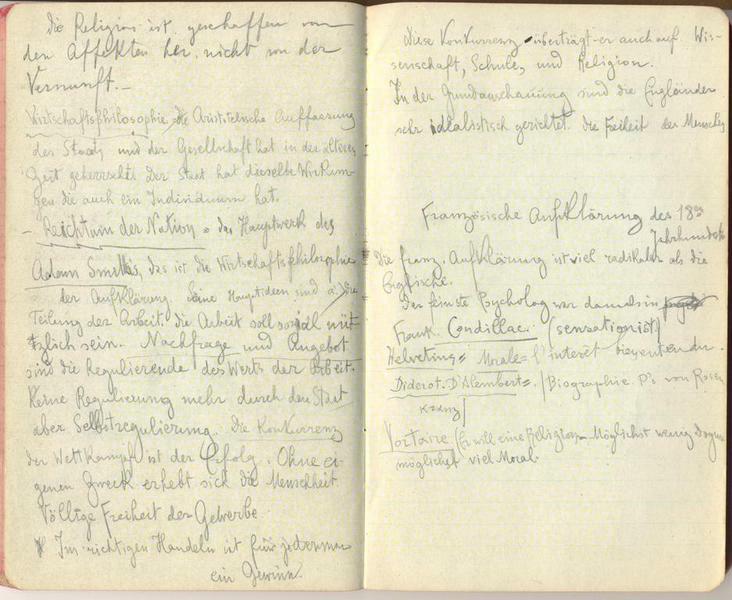 die Religion ist geschaffen von
den Affekten her, nicht von der
Vernunft. –
Wirtschaftsphilosophie, die Aristotelische Auffassung
des Staats und der Gesellschaft hat in der älteren
Zeit geherrscht. Der Staat hat dieselbe Wirkun-
gen die auch ein Individuum hat.
– Reichtum der Nation = das Hauptwerk des
Adam Smiths, das ist die Wirtschaftsphilosophie
der Aufklärung. Seine Hauptideen sind a) die
Teilung der Arbeit. die Arbeit soll sozial nüt-
zlich sein. Nachfrage und Angebot
sind die Regulierende des Werts der Arbeit.
Keine Regulierung mehr durch den Staat
aber Selbstregulierung. Die Konkurrenz
der Wettkampf ist der Erfolg. Ohne ei-
genen Zweck erhebt sich die Menschheit.
Völlige Freiheit der Gewerbe.
Im richtigen Handeln ist für jederman
ein Gewinn.
diese Konkurrenz überträgt er auch auf Wis-
senschaft, Schule, und Religion.
In der Grundanschauung sind die Engländer
sehr idealistisch gerichtet. die Freiheit des Menschen
Französische Aufklärung des 18ten
Jahrhunderts
die franz. Aufklärung ist viel radikaler als die
Englische.
Der feinste Psycholog war damals in
Frank. Condillac. (sensationist)
Helvetius = Morale = l'interêt
Diderot. D'Alembert =. (Biographie D's von Rosen
kranz)
Voltaire (Er will eine Religion – Möglichst wenig Dogma
möglichst viel Moral.